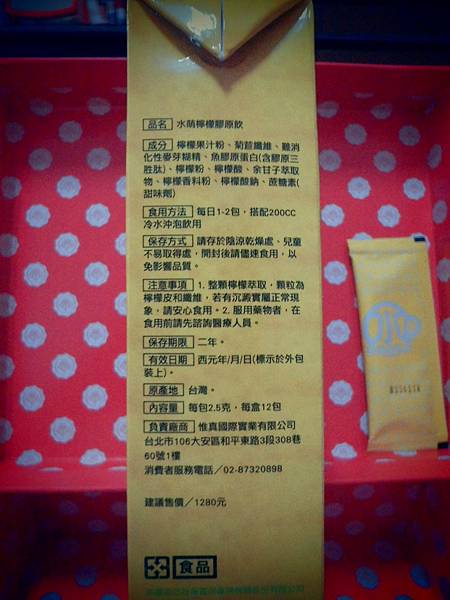 品名 水萌檸檬膠原飲
成分 檸檬果汁粉、菊苣纖維、難消
化性麥芽糊精、魚膠原蛋白(含膠原三
胜肽)、檸檬粉、檸檬酸、余甘子萃取
物、檸檬香料粉、檸檬酸鈉、蔗糖素(
甜味劑)
食用方法 每日1-2包，搭配200CC
冷水沖泡飲用
保存方式 請存於陰涼乾燥處、兒童
不易取得處，開封後請儘速食用，以
免影響品質。
注意事項 1. 整顆檸檬萃取，顆粒為
檸檬皮和纖維，若有沉澱實屬正常現
象，請安心食用。2. 服用藥物者，在
食用前請先諮詢醫療人員。
保存期限 二年。
有效日期 西元年/月/日(標示於外包
裝上)。
原產地 台灣。
內容量 每包2.5克，每盒12包
負責廠商 惟真國際實業有限公司
台北市106大安區和平東路3段308巷
60號1樓
消費者服務電話／02-87320898
建議售價／1280元
食品